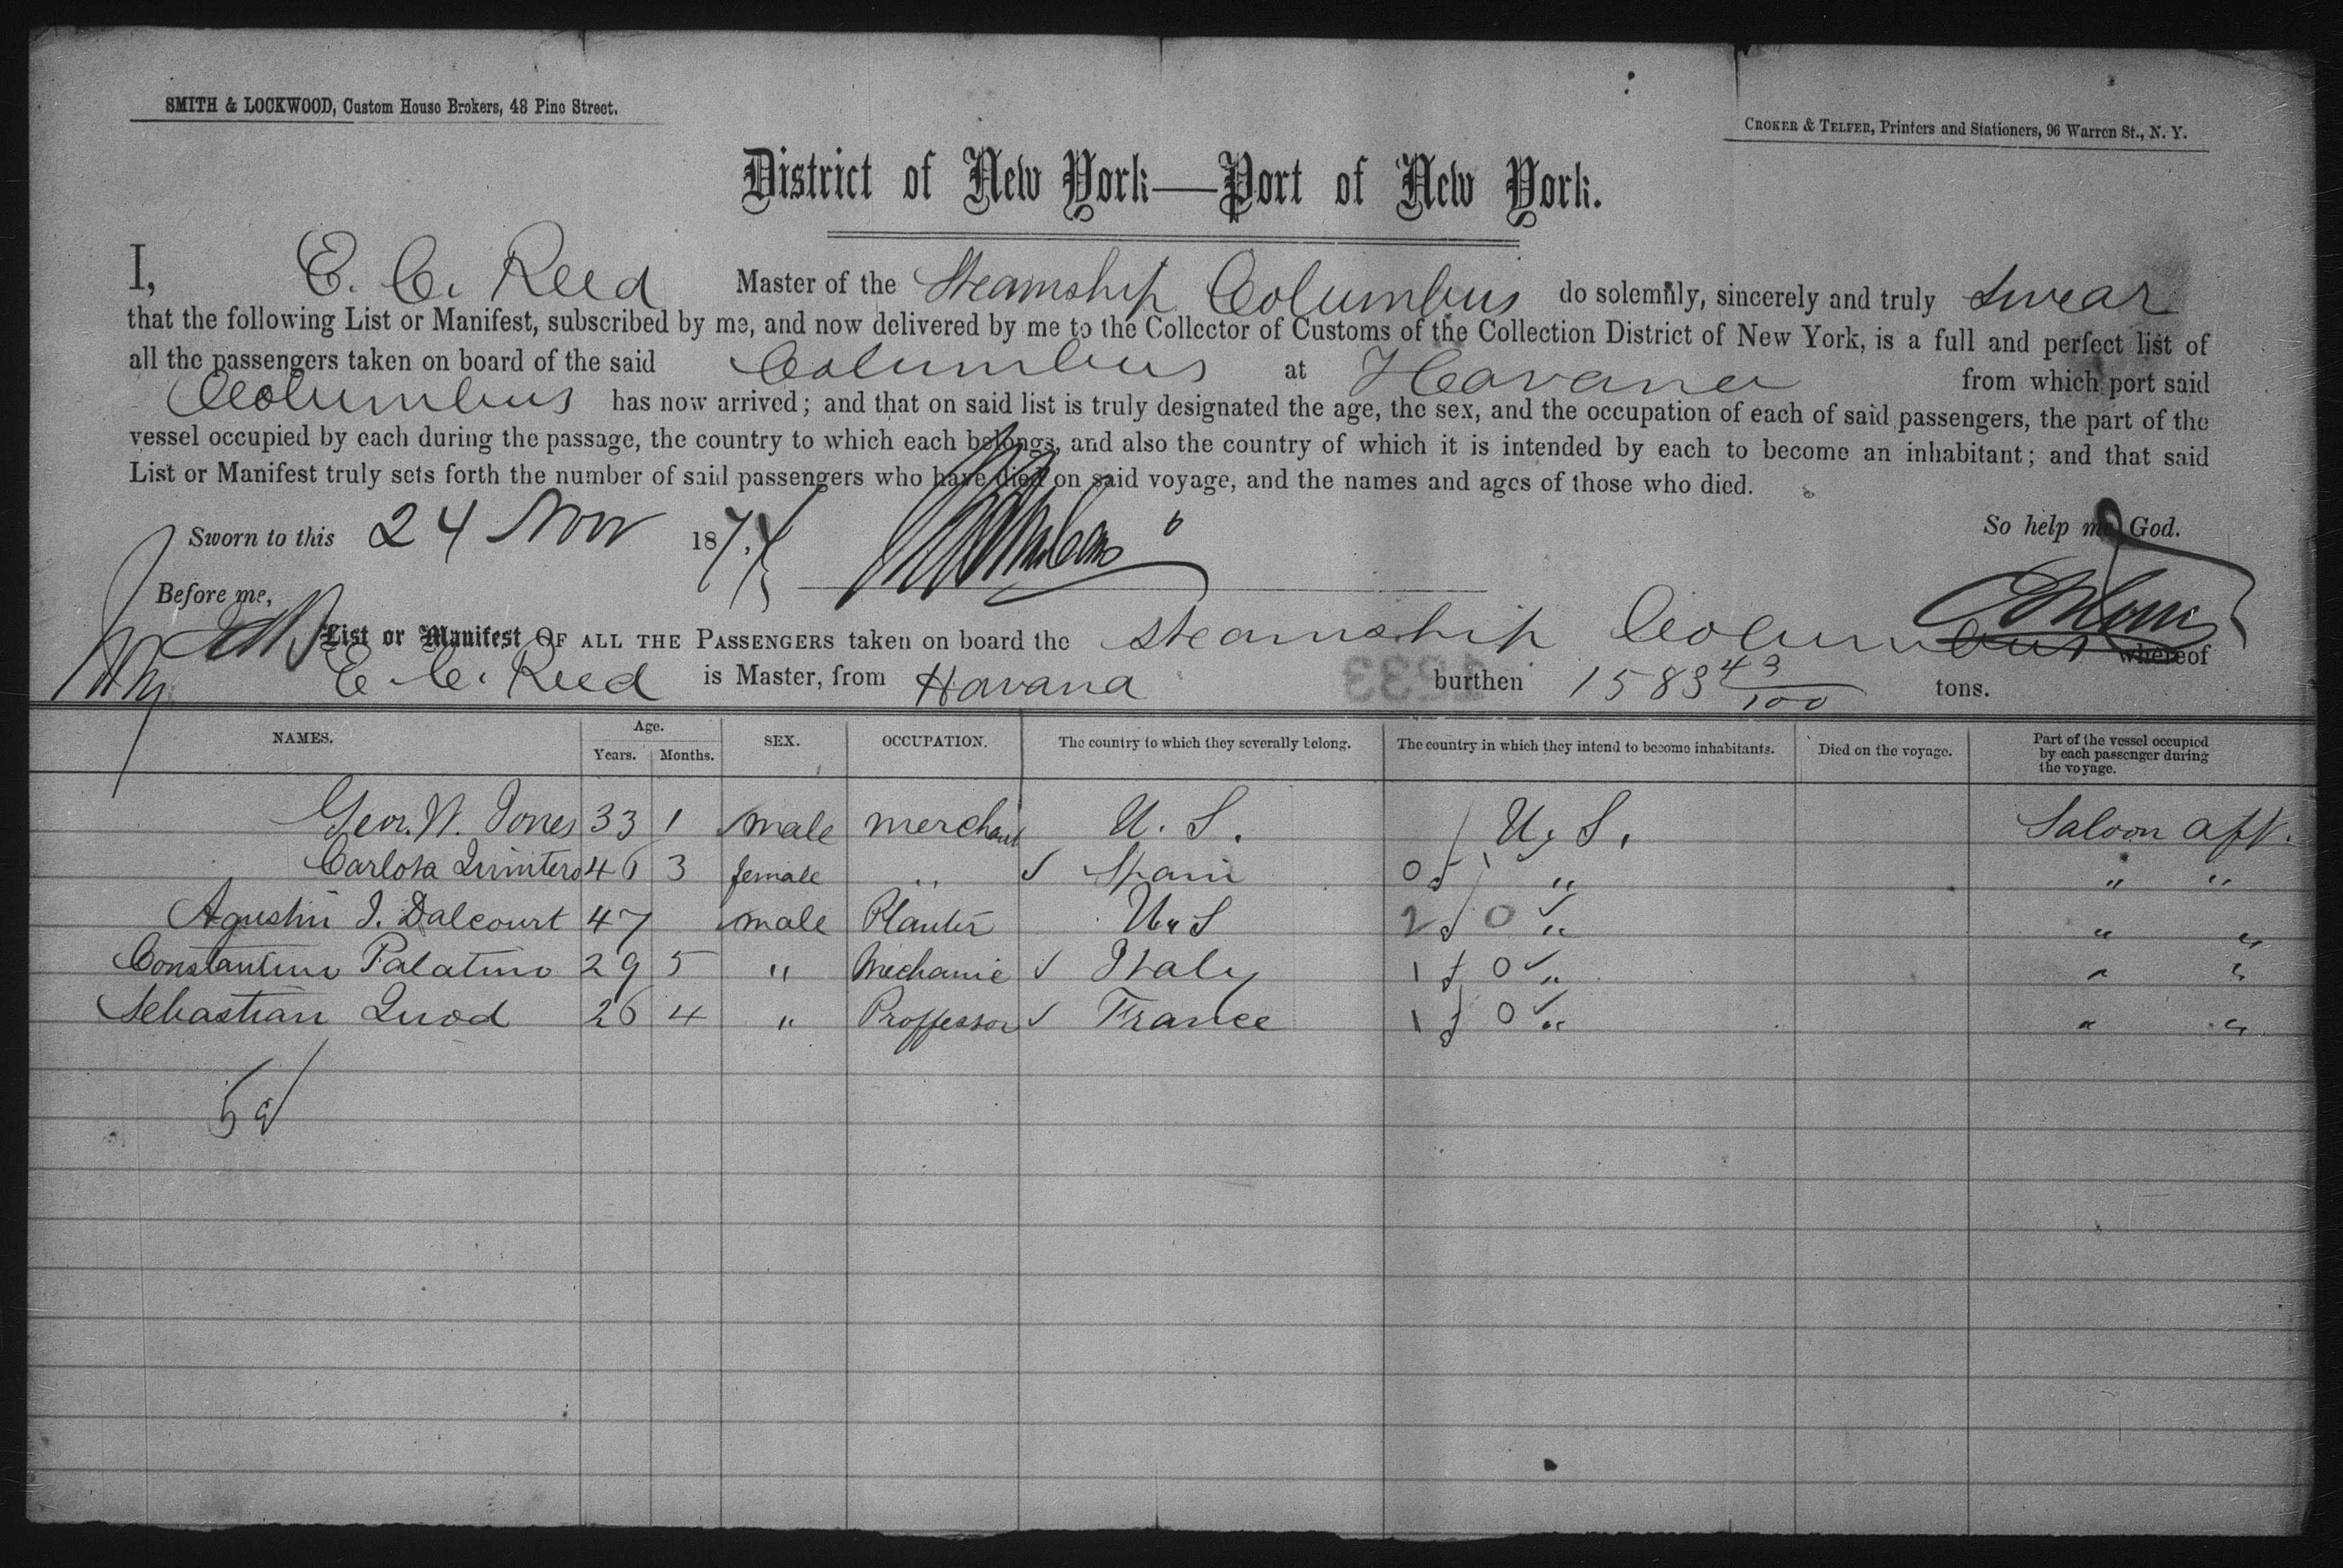 SMITH & LOCKWOOD, Custom House Brokers, 48 Pine Street.
CROKER & TELFER, Printers and Stationers, 96 Warren St., N. Y.
District of New York—Port of New York.
I, E. C. Reed Master of the Steamship Columbus do solemnly, sincerely and truly swear
that the following List or Manifest, subscribed by me, and now delivered by me to the Collector of Customs of the Collection District of New York, is a full and perfect list of
all the passengers taken on board of the said Columbus at Havana from which port said
Columbus has now arrived; and that on said list is truly designated the age, the sex, and the occupation of each of said passengers, the part of the
vessel occupied by each during the passage, the country to which each belongs, and also the country of which it is intended by each to become an inhabitant; and that said
List or Manifest truly sets forth the number of said passengers who have died on said voyage, and the names and ages of those who died.
Sworn to this 24 Nov 1874 So help me God.
Before me,
List or Manifest OF ALL THE PASSENGERS taken on board the Steamship Columbus whereof
E. C. Reed is Master, from Havana burthen 1583 43/100 tons.
NAMES. Age. Years. Months. SEX. OCCUPATION. The country to which they severally belong. The country in which they intend to become inhabitants. Died on the voyage. Part of the vessel occupied by each passenger during the voyage.
Geor. W. Jones 33 1 male merchant U. S. U. S. Saloon aft.
Carlota Quintero 46 3 female " Spain " " "
Agustin J. Dalcourt 47 male Planter U. S " " "
Constantino Palatino 29 5 " Mechanic Italy " " "
Sebastian Quod 26 4 " Proffessor France " " "